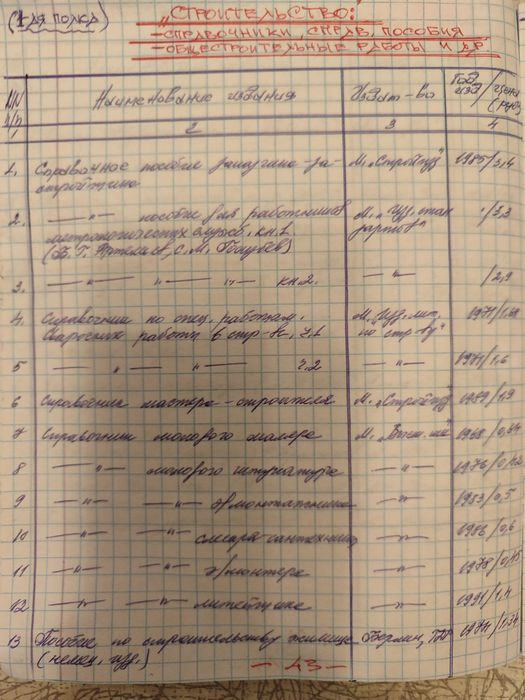 (1-ая полка)
"СТРОИТЕЛЬСТВО:"
- СПРАВОЧНИКИ, СПРАВ. ПОСОБИЯ
- ОБЩЕСТРОИТЕЛЬНЫЕ РАБОТЫ И ДР
NN п/п Наименование издания Издат-во Год изд/цена (руб)
1 2 3 4
1. Справочное пособие заказчика-за- М. "Стройиздат" 1985/3,4
стройщика
2. —"— пособие для работников М. "Изд. стан /3,3
метрологических служб, кн.1. дартов"
(В. Г. Артемьев, С. М. Голубев)
3. —"— —"— —"— кн.2. —"— /2,9
4. Справочник по спец. работам. М. "Изд. лит. 1971/
Сварочные работы в стр-ве, ч.1 по стр-ву"
5 —"— —"— ч.2 —"— 1971/1,6
6 Справочник мастера-строителя М. "Стройиздат" 1989/1,9
7 Справочник молодого маляра М. "Высш. шк" 1968/0,64
8 —"— молодого штукатура —"— 1976/
9 —"— —"— э/монтажника —"— 1983/0,5
10 —"— —"— слесаря-сантехника —"— 1986/0,6
11 —"— —"— э/монтера —"— 1978/0,45
12 —"— —"— литейщика —"— 1991/1,4
13 Пособие по строительству жилища Берлин, ГДР 1974/1,34
(немец. изд.)
— 43 —